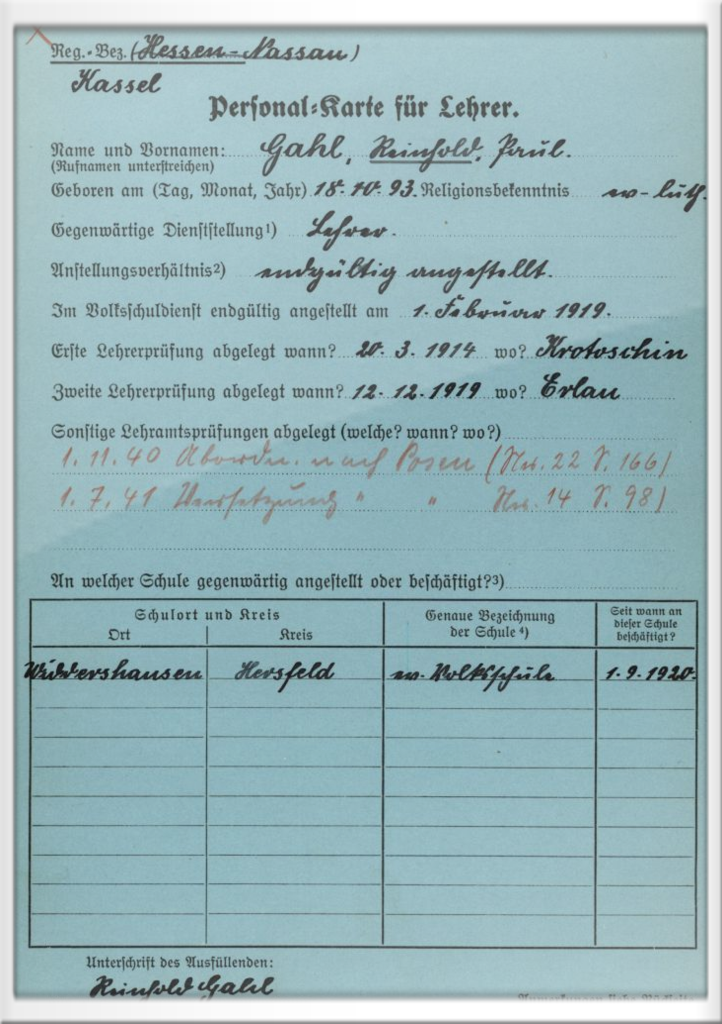 Reg.-Bez. (Hessen-Nassau)
Kassel
Personal-Karte für Lehrer.
Name und Vornamen: Gahl, Reinhold, Paul.
(Rufnamen unterstreichen)
Geboren am (Tag, Monat, Jahr) 18.10.93. Religionsbekenntnis ev-luth.
Gegenwärtige Dienststellung¹) Lehrer.
Anstellungsverhältnis²) endgültig angestellt.
Im Volksschuldienst endgültig angestellt am 1. Februar 1919.
Erste Lehrerprüfung abgelegt wann? 20. 3. 1914 wo? Krotoschin
Zweite Lehrerprüfung abgelegt wann? 12.12.1919 wo? Erlau
Sonstige Lehramtsprüfungen abgelegt (welche? wann? wo?)
1.11.40 Abordn. nach Posen (Nr. 22 S. 166)
1.7.41 Versetzung " " Nr. 14 S. 98)
An welcher Schule gegenwärtig angestellt oder beschäftigt?³)
Schulort und Kreis
Ort Kreis
Genaue Bezeichnung
der Schule ⁴)
Seit wann an
dieser Schule
beschäftigt?
Widdershausen Hersfeld ev. Volksschule 1.9.1920.
Unterschrift des Ausfüllenden:
Reinhold Gahl